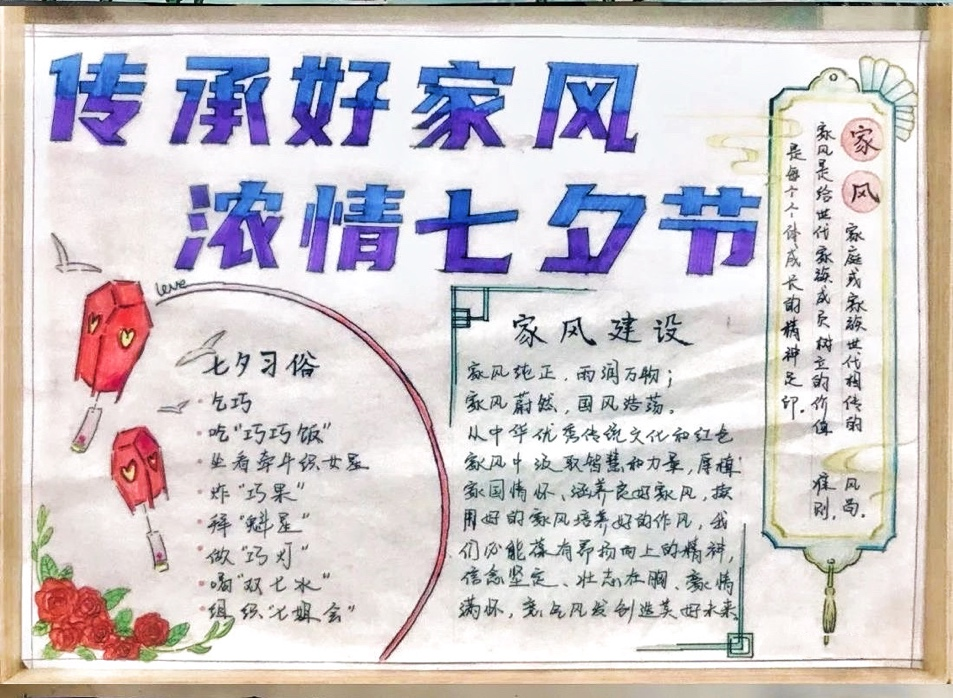 传承好家风
浓情七夕节
love
七夕习俗
乞巧
吃"巧巧饭"
坐看牵牛织女星
炸"巧果"
拜"魁星"
做"巧灯"
喝"双七水"
组织"七姐会"
家风建设
家风纯正，雨润万物；
家风蔚然，国风浩荡。
从中华优秀传统文化和红色
家风中汲取智慧和力量，厚植
家国情怀、涵养良好家风，按
用好的家风培养好的作风，我
们必能葆有昂扬向上的精神，
信念坚定、壮志在胸、豪情
满怀，意气风发创造美好未来
家风 家庭或家族世代相传的风尚。
家风是给世代家族成员树立的价值准则，
是每个个体成长的精神足印。